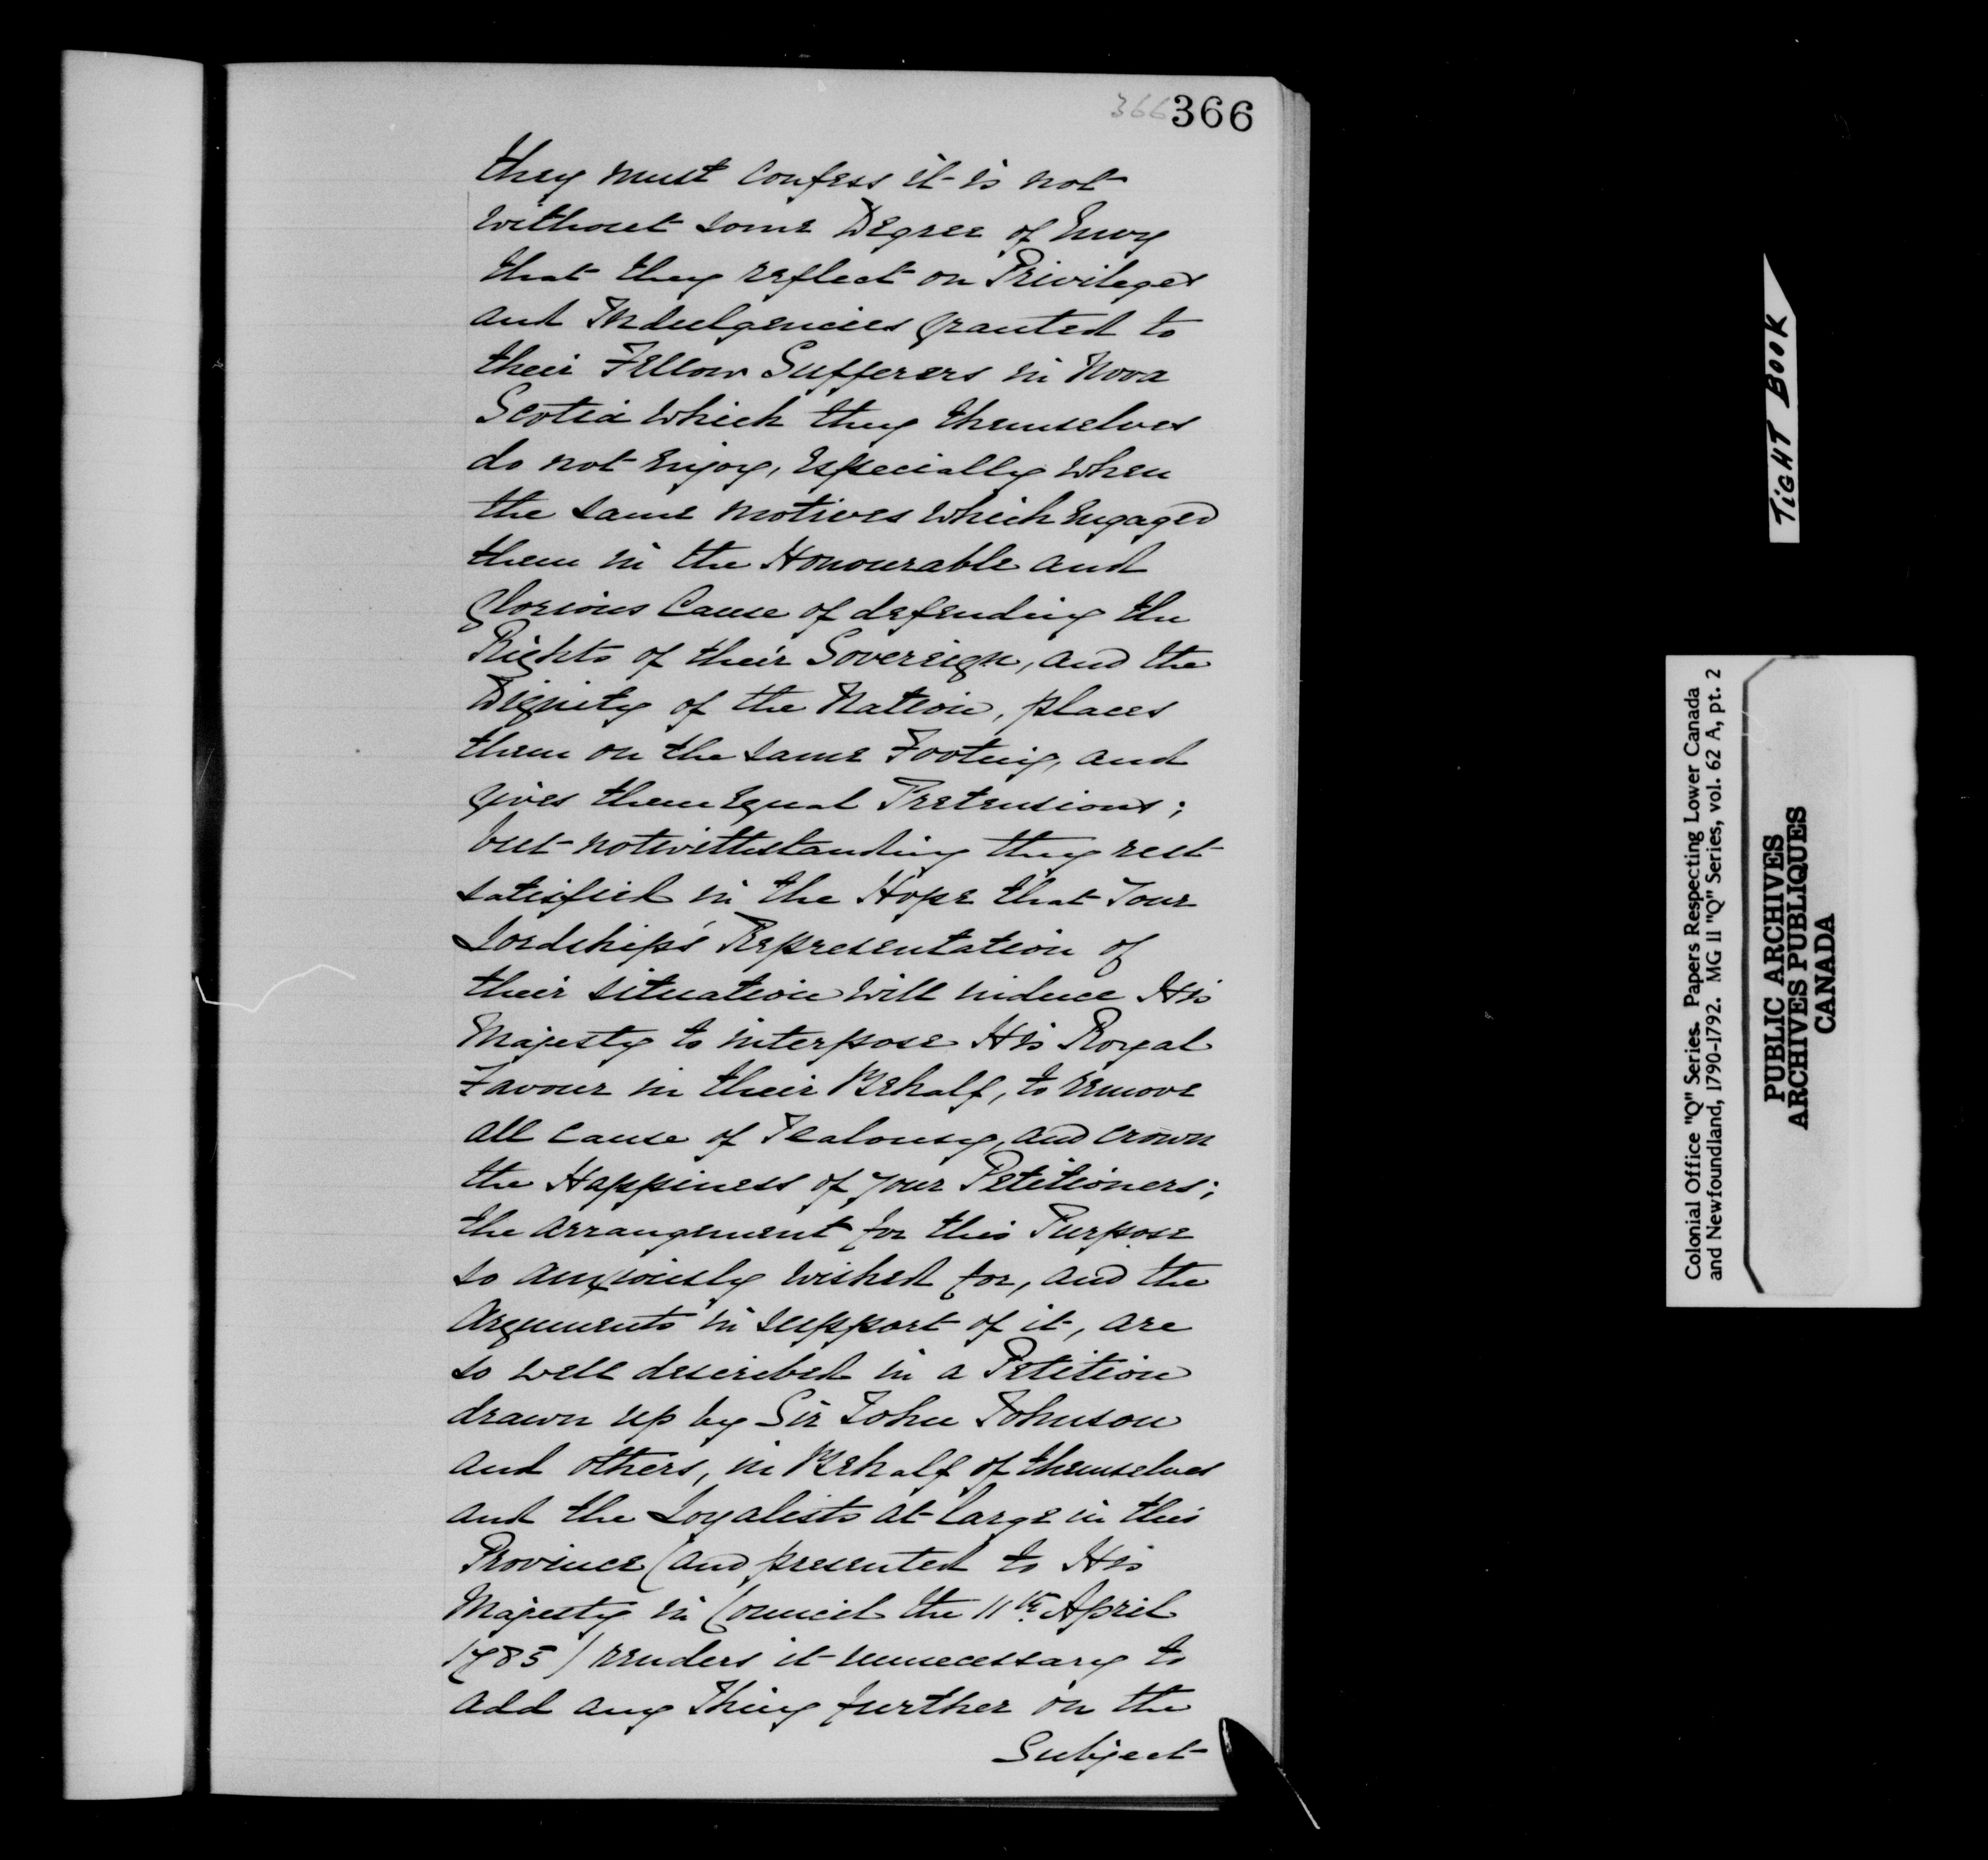 366 366
they must confess it is not
without some Degree of Envy
that they reflect on Privileges
and Indulgencies granted to
their Fellow Sufferers in Nova
Scotia which they themselves
do not enjoy, especially when
the same motives which Engaged
them in the Honourable and
glorious Cause of defending the
Rights of their Sovereign, and the
Dignity of the Nation, places
them on the same Footing, and
gives them equal Pretensions;
but notwithstanding they rest
satisfied in the Hope that Your
Lordship's Representation of
their situation will induce His
Majesty to interpose His Royal
Favour in their Behalf, to remove
all cause of Jealousy, and crown
the Happiness of your Petitioners;
the arrangement for this Purpose
so anxiously wished for, and the
Arguments in support of it, are
so well described in a Petition
drawn up by Sir John Johnson
and others, in Behalf of themselves
and the Loyalists at large in this
Province (and presented to His
Majesty in Council the 11th April
1785) renders it unnecessary to
add any Thing further on the
Subject
TIGHT BOOK
Colonial Office "Q" Series. Papers Respecting Lower Canada
and Newfoundland, 1790-1792. MG 11 "Q" Series, vol. 62 A, pt. 2
PUBLIC ARCHIVES
ARCHIVES PUBLIQUES
CANADA